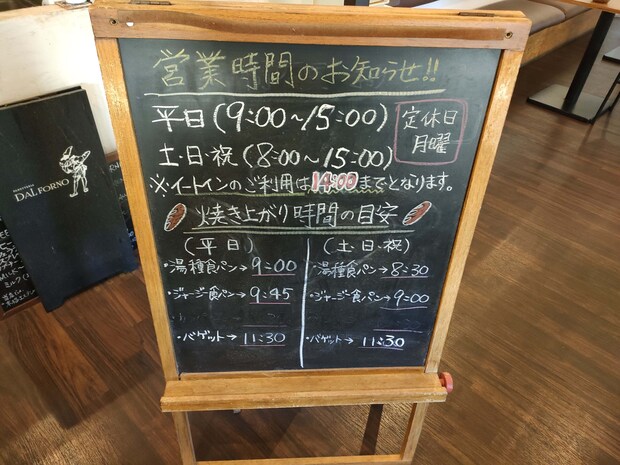 営業時間のお知らせ!!
平日(9:00～15:00)
定休日
月曜
土・日・祝(8:00～15:00)
※イートインのご利用は14:00までとなります。
焼き上がり時間の目安
(平日)
・湯種食パン→9:00
・ジャージー食パン→9:45
・バゲット→11:30
(土・日・祝)
・湯種食パン→8:30
・ジャージー食パン→9:00
・バゲット→11:30
DALFORNO